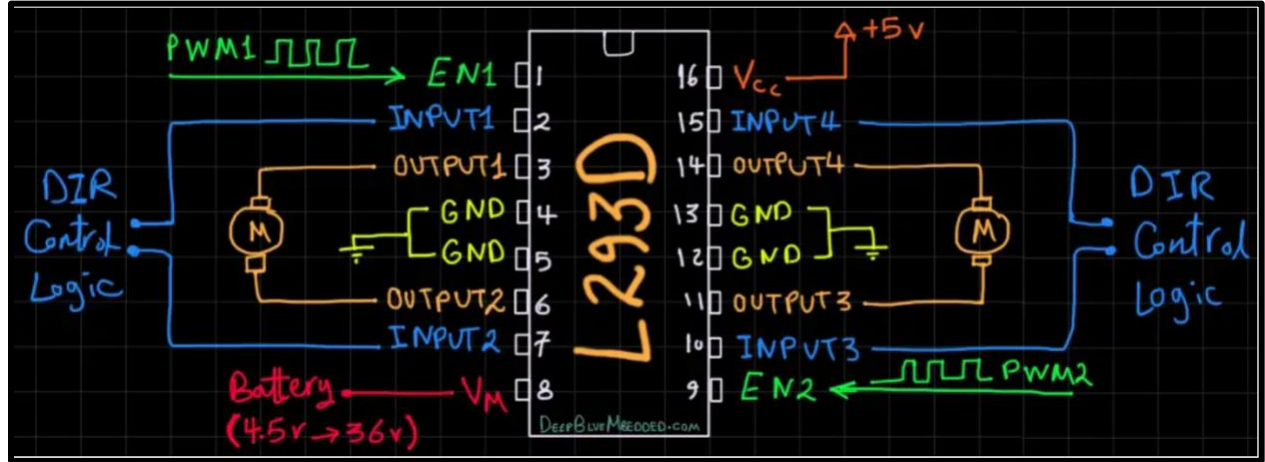 PWM1
EN1 1
INPUT1 2
OUTPUT1 3
GND 4
GND 5
OUTPUT2 6
INPUT2 7
VM 8
DIR
Control
Logic
M
Battery
(4.5v→36v)
L293D
DEEPBLUEMBEDDED.COM
+5v
16 Vcc
15 INPUT4
14 OUTPUT4
13 GND
12 GND
11 OUTPUT3
10 INPUT3
9 EN2
PWM2
M
DIR
Control
Logic